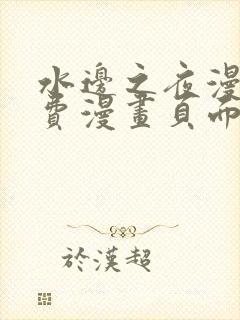 水邊之夜漫
費漫畫頁面
於漢超